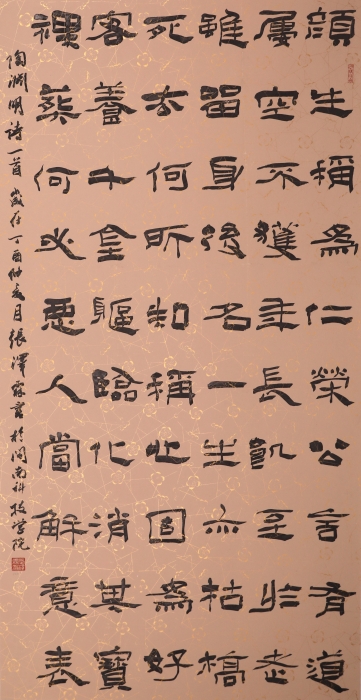 顏生稱為仁榮公言有道
屢空不獲年長飢至於老
雖留身後名一生亦枯槁
死去何所知稱心固為好
客養千金軀臨化消其寶
裸葬何必惡人當解意表
陶淵明詩一首 歲在丁酉仲月張澤書於閩南科技學院